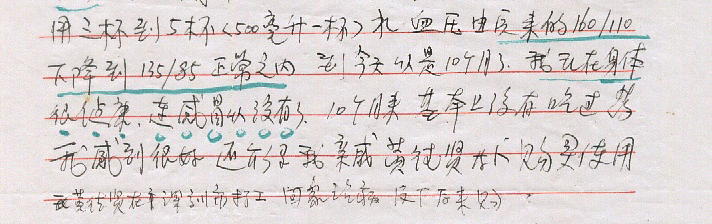 用三杯到5杯(500毫升一杯)礼 血压由原来的160/110
下降到135/85正常之内 到今天以是10个月了.我现在身体
很健康,连感冒以没有了 10个月来 基本上没有吃过药
我感到很好 还介绍我亲戚黄 贤 购买使用
黄 贤在 深圳市打工 回家 下 来